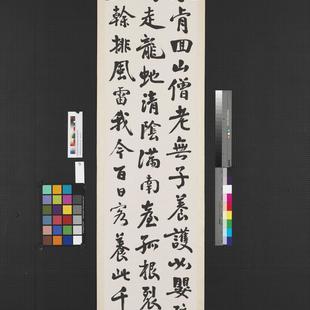 肯回山僧老無子養護如嬰孩
走龍蛇清陰滿南臺孤根裂
幹排風雷我今百日客養此千